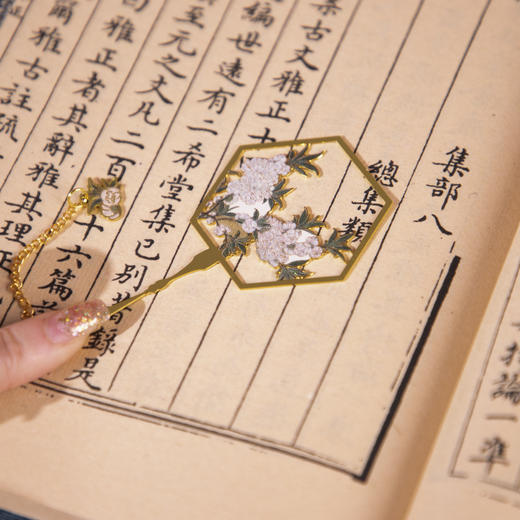 論一準
集部八
總集類
集古文雅正十
編世遠有二希堂集已別著錄是
至元之文凡二百十六篇
雅正者其辭雅其理正
爾雅古註疏